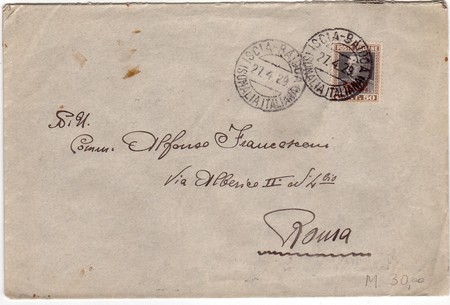 ISCIA-BAIDOA
27.4.29
(SOMALIA ITALIANA)
ISCIA-BAIDOA
27.4.29
(SOMALIA ITALIANA)
50
Comm. Alfonso Francesconi
Via Alberico II N 4 bis
Roma
M 30,00